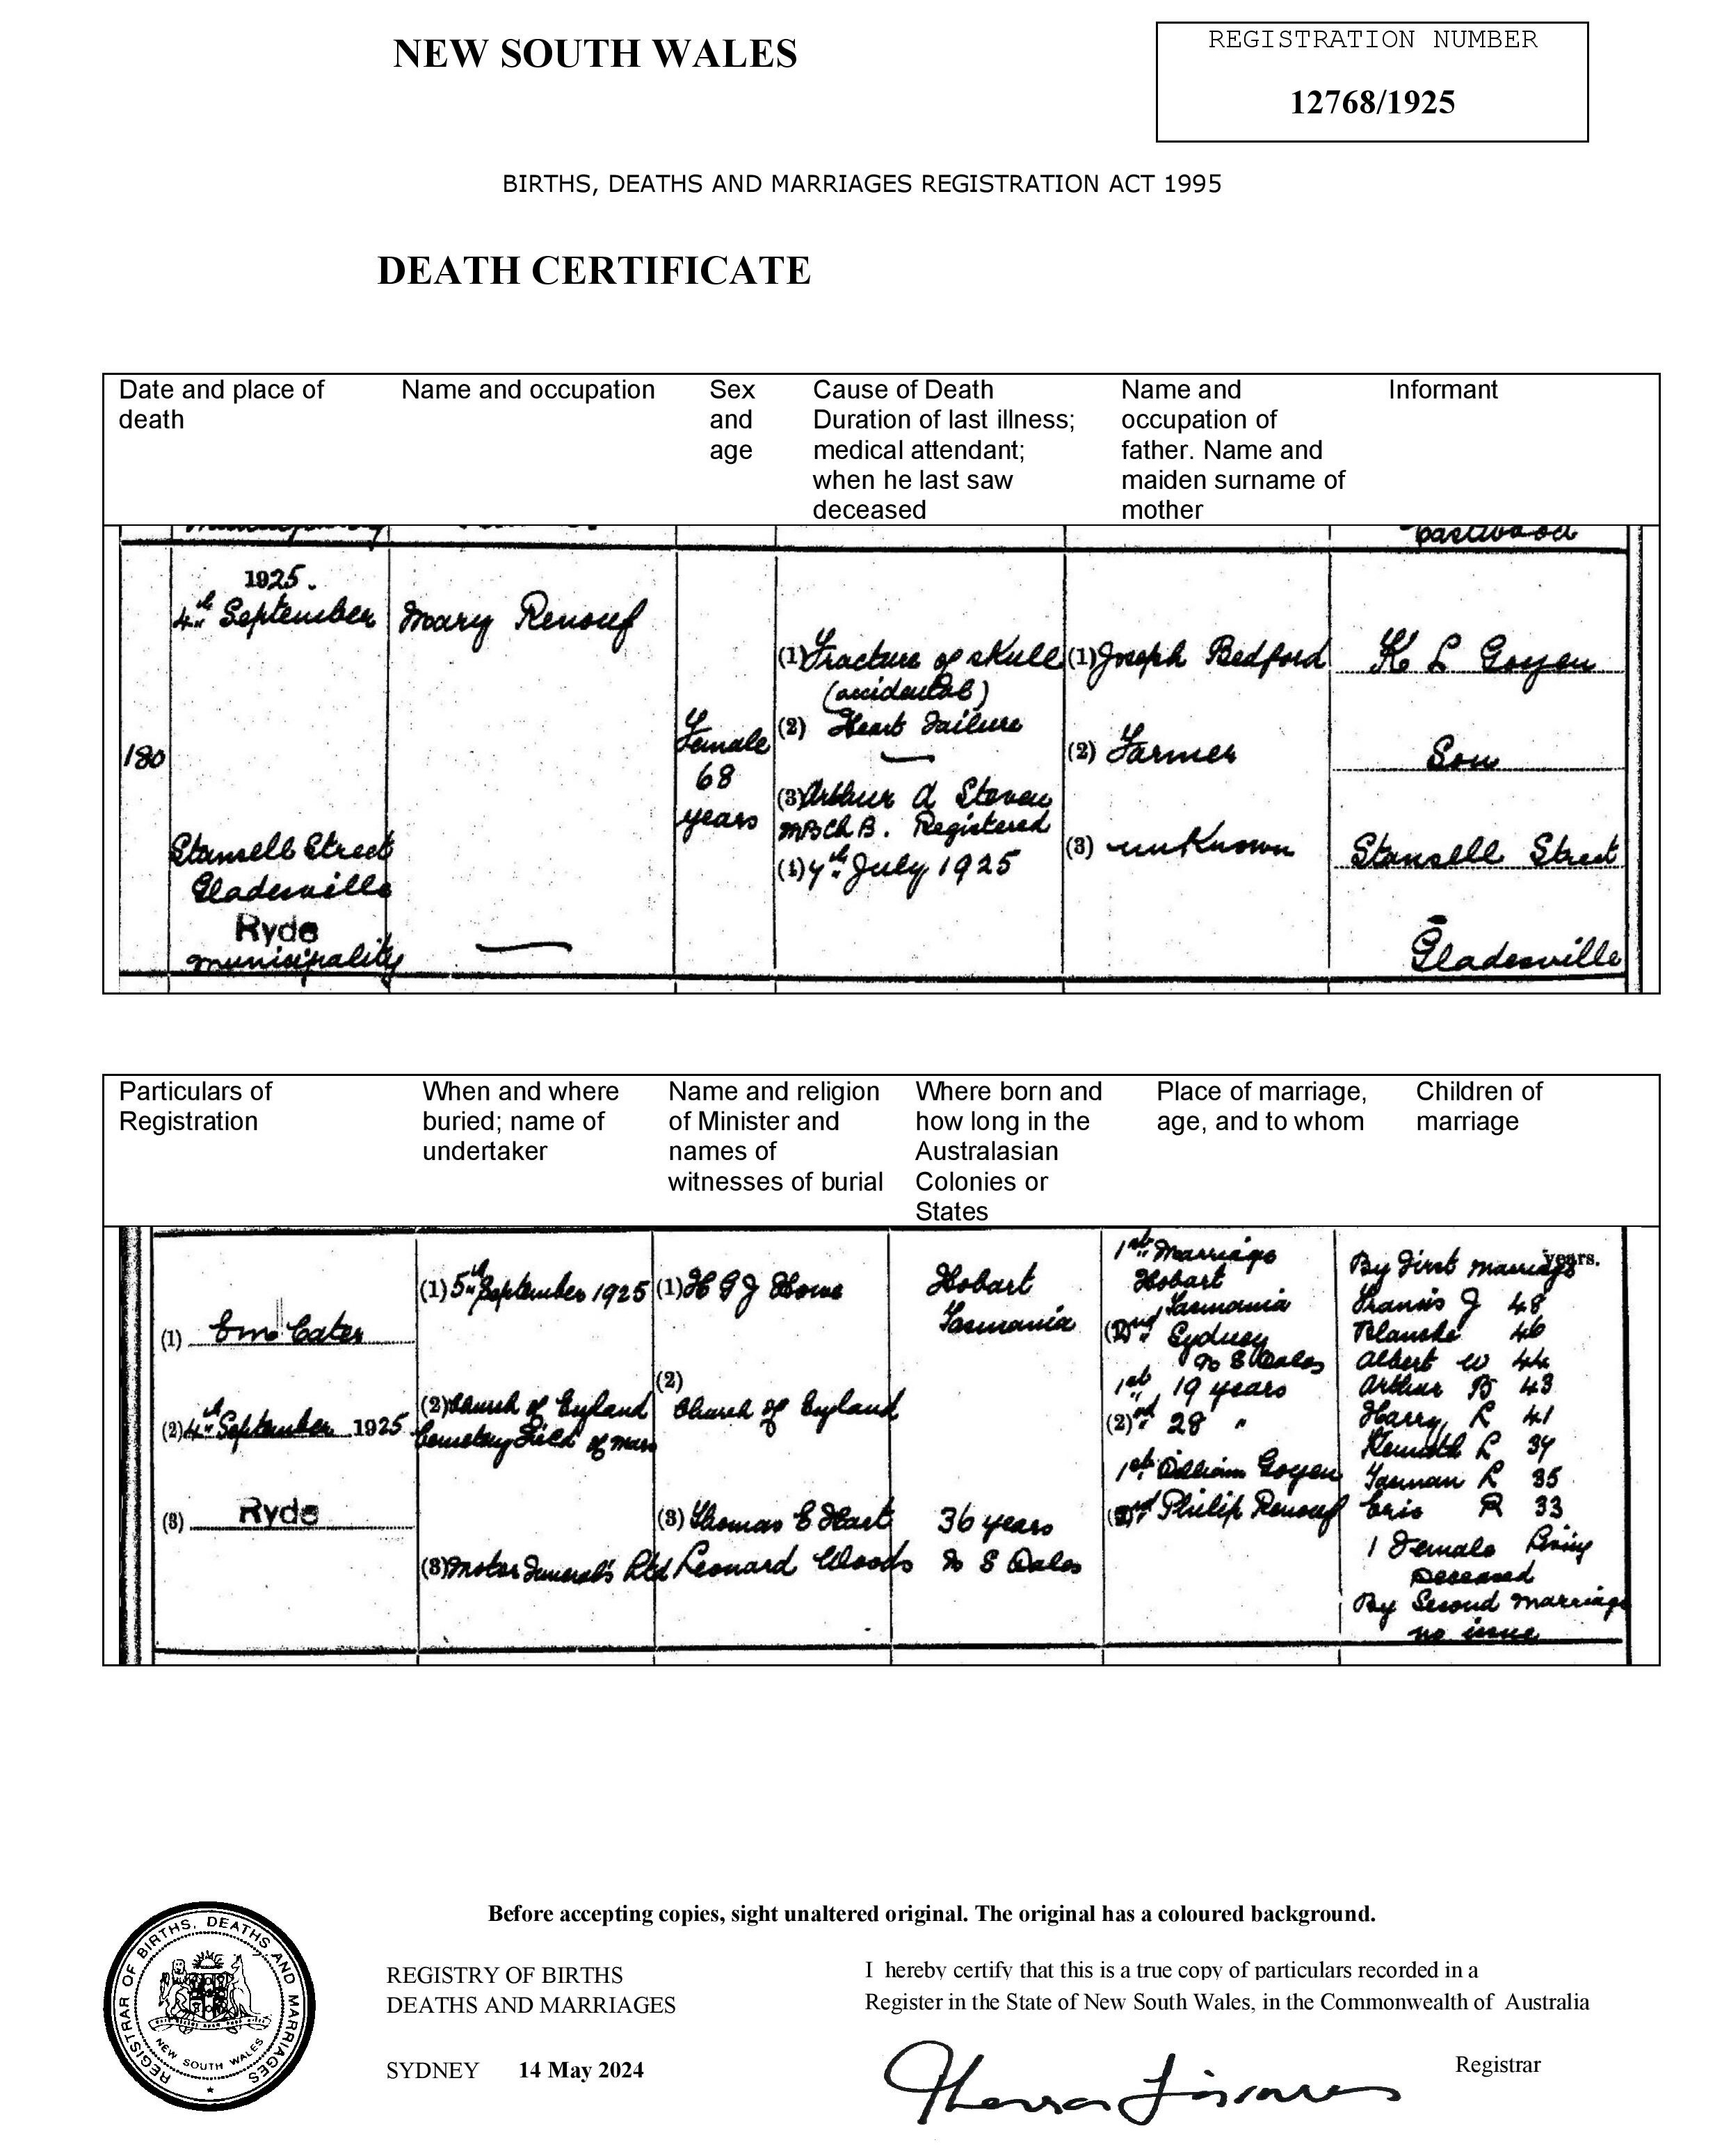 NEW SOUTH WALES
REGISTRATION NUMBER
12768/1925
BIRTHS, DEATHS AND MARRIAGES REGISTRATION ACT 1995
DEATH CERTIFICATE
Date and place of
death
Name and occupation
Sex
and
age
Cause of Death
Duration of last illness;
medical attendant;
when he last saw
deceased
Name and
occupation of
father. Name and
maiden surname of
mother
Informant
Eastwood
180
1925.
4th September
Stansell Street
Gladesville
Ryde
municipality
Mary Renouf
Female
68
years
(1) Fracture of skull
(accidental)
(2) Heart Failure
(3) Arthur A Steven
MBChB. Registered
(4) 7th July 1925
(1) Joseph Bedford
(2) Farmer
(3) unknown
K L Goyen
Son
Stansell Street
Gladesville
Particulars of
Registration
When and where
buried; name of
undertaker
Name and religion
of Minister and
names of
witnesses of burial
Where born and
how long in the
Australasian
Colonies or
States
Place of marriage,
age, and to whom
Children of
marriage
(1) Cater
(2) 4th September 1925
(3) Ryde
(1) 5th September 1925
(2) Church of England
Cemetery Field of Mars
(3) Motor Funerals Ltd
(1) H G J Howe
(2)
Church of England
(3) Thomas E Hart
Leonard Woods
Hobart
Tasmania
36 years
N S Wales
1st Marriage
Hobart
Tasmania
(2)nd Sydney
N S Wales
1st 19 years
(2)nd 28 "
1st William Goyen
(2)nd Philip Renouf
years.
By First marriage
Francis J 48
Blanche 46
Albert W 44
Arthur B 43
Harry R 41
Kenneth L 37
Tasman R 35
Eric R 33
Living
1 Female
Deceased
By Second marriage
no issue
Before accepting copies, sight unaltered original. The original has a coloured background.
REGISTRAR OF BIRTHS, DEATHS AND MARRIAGES
NEW SOUTH WALES
REGISTRY OF BIRTHS
DEATHS AND MARRIAGES
SYDNEY 14 May 2024
I hereby certify that this is a true copy of particulars recorded in a
Register in the State of New South Wales, in the Commonwealth of Australia
Registrar